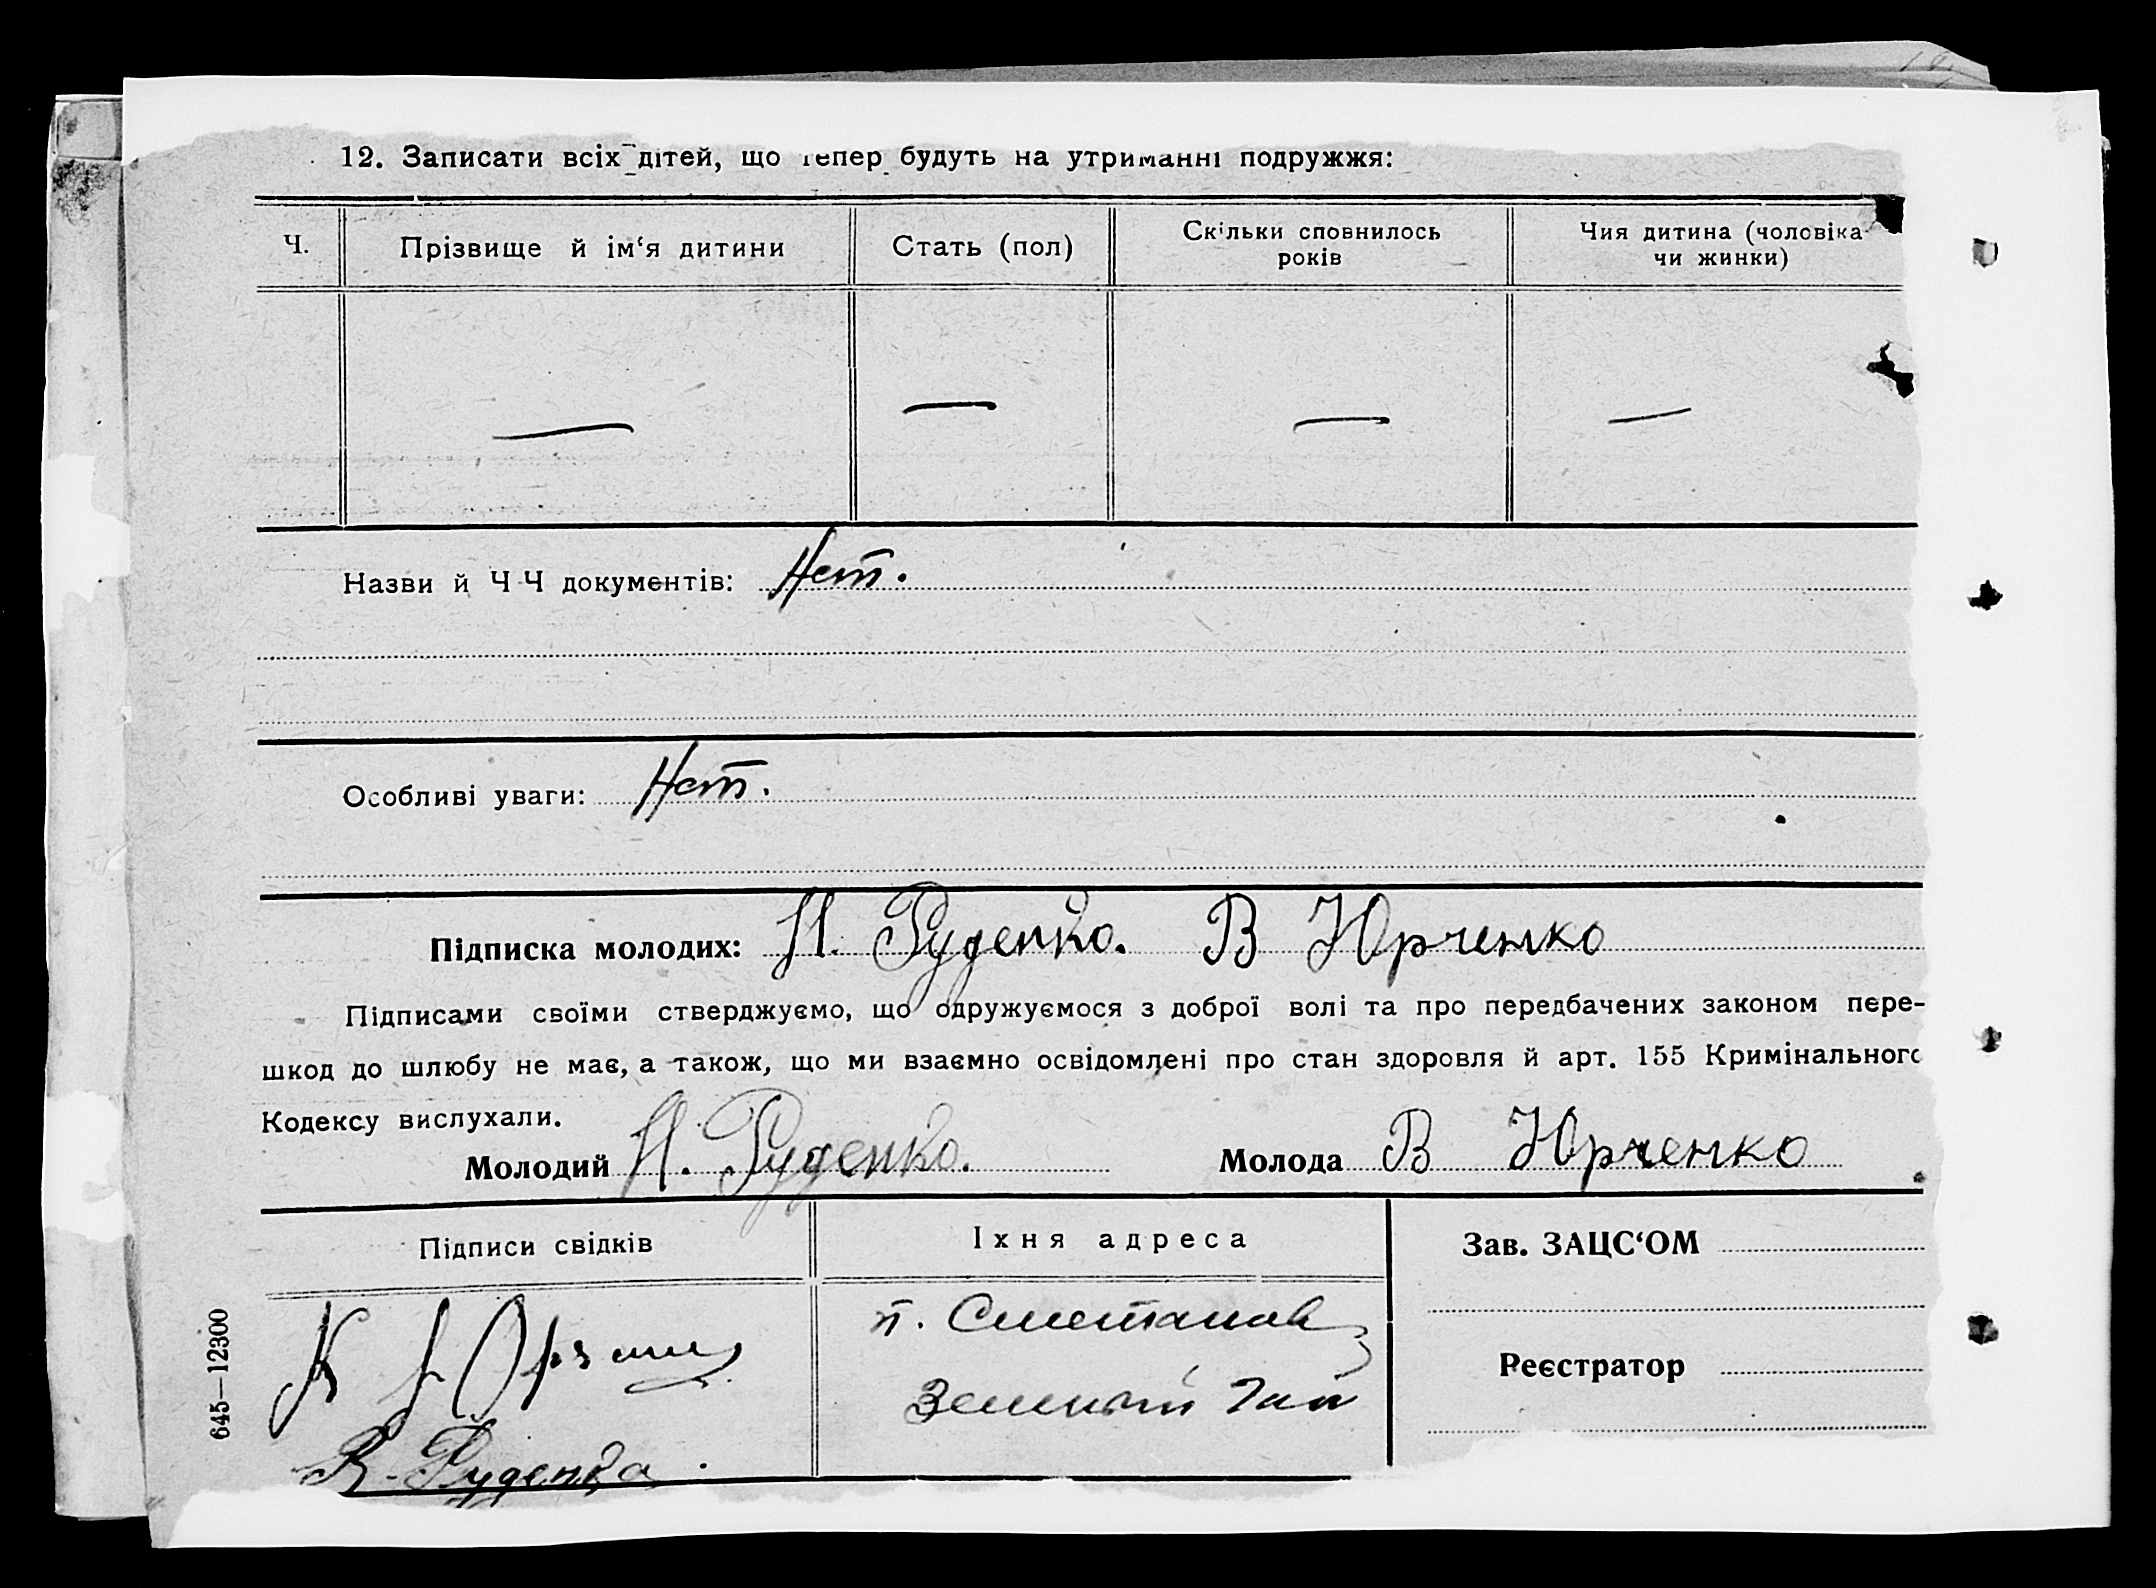 12. Записати всіх дітей, що тепер будуть на утриманні подружжя:
Ч. Прізвище й ім‘я дитини Стать (пол) Скільки сповнилось років Чия дитина (чоловіка чи жинки)
— — — —
Назви й Ч Ч документів: Нет.
Особливі уваги: Нет.
Підписка молодих: Н. Руденко. В Юрченко
Підписами своїми стверджуємо, що одружуємося з доброї волі та про передбачених законом пере-
шкод до шлюбу не має, а також, що ми взаємно освідомлені про стан здоровля й арт. 155 Кримінального
Кодексу вислухали.
Молодий Н. Руденко. Молода В Юрченко
Підписи свідків Їхня адреса Зав. ЗАЦС‘ОМ
п.
Реєстратор
Гай
Руденко
645—12300